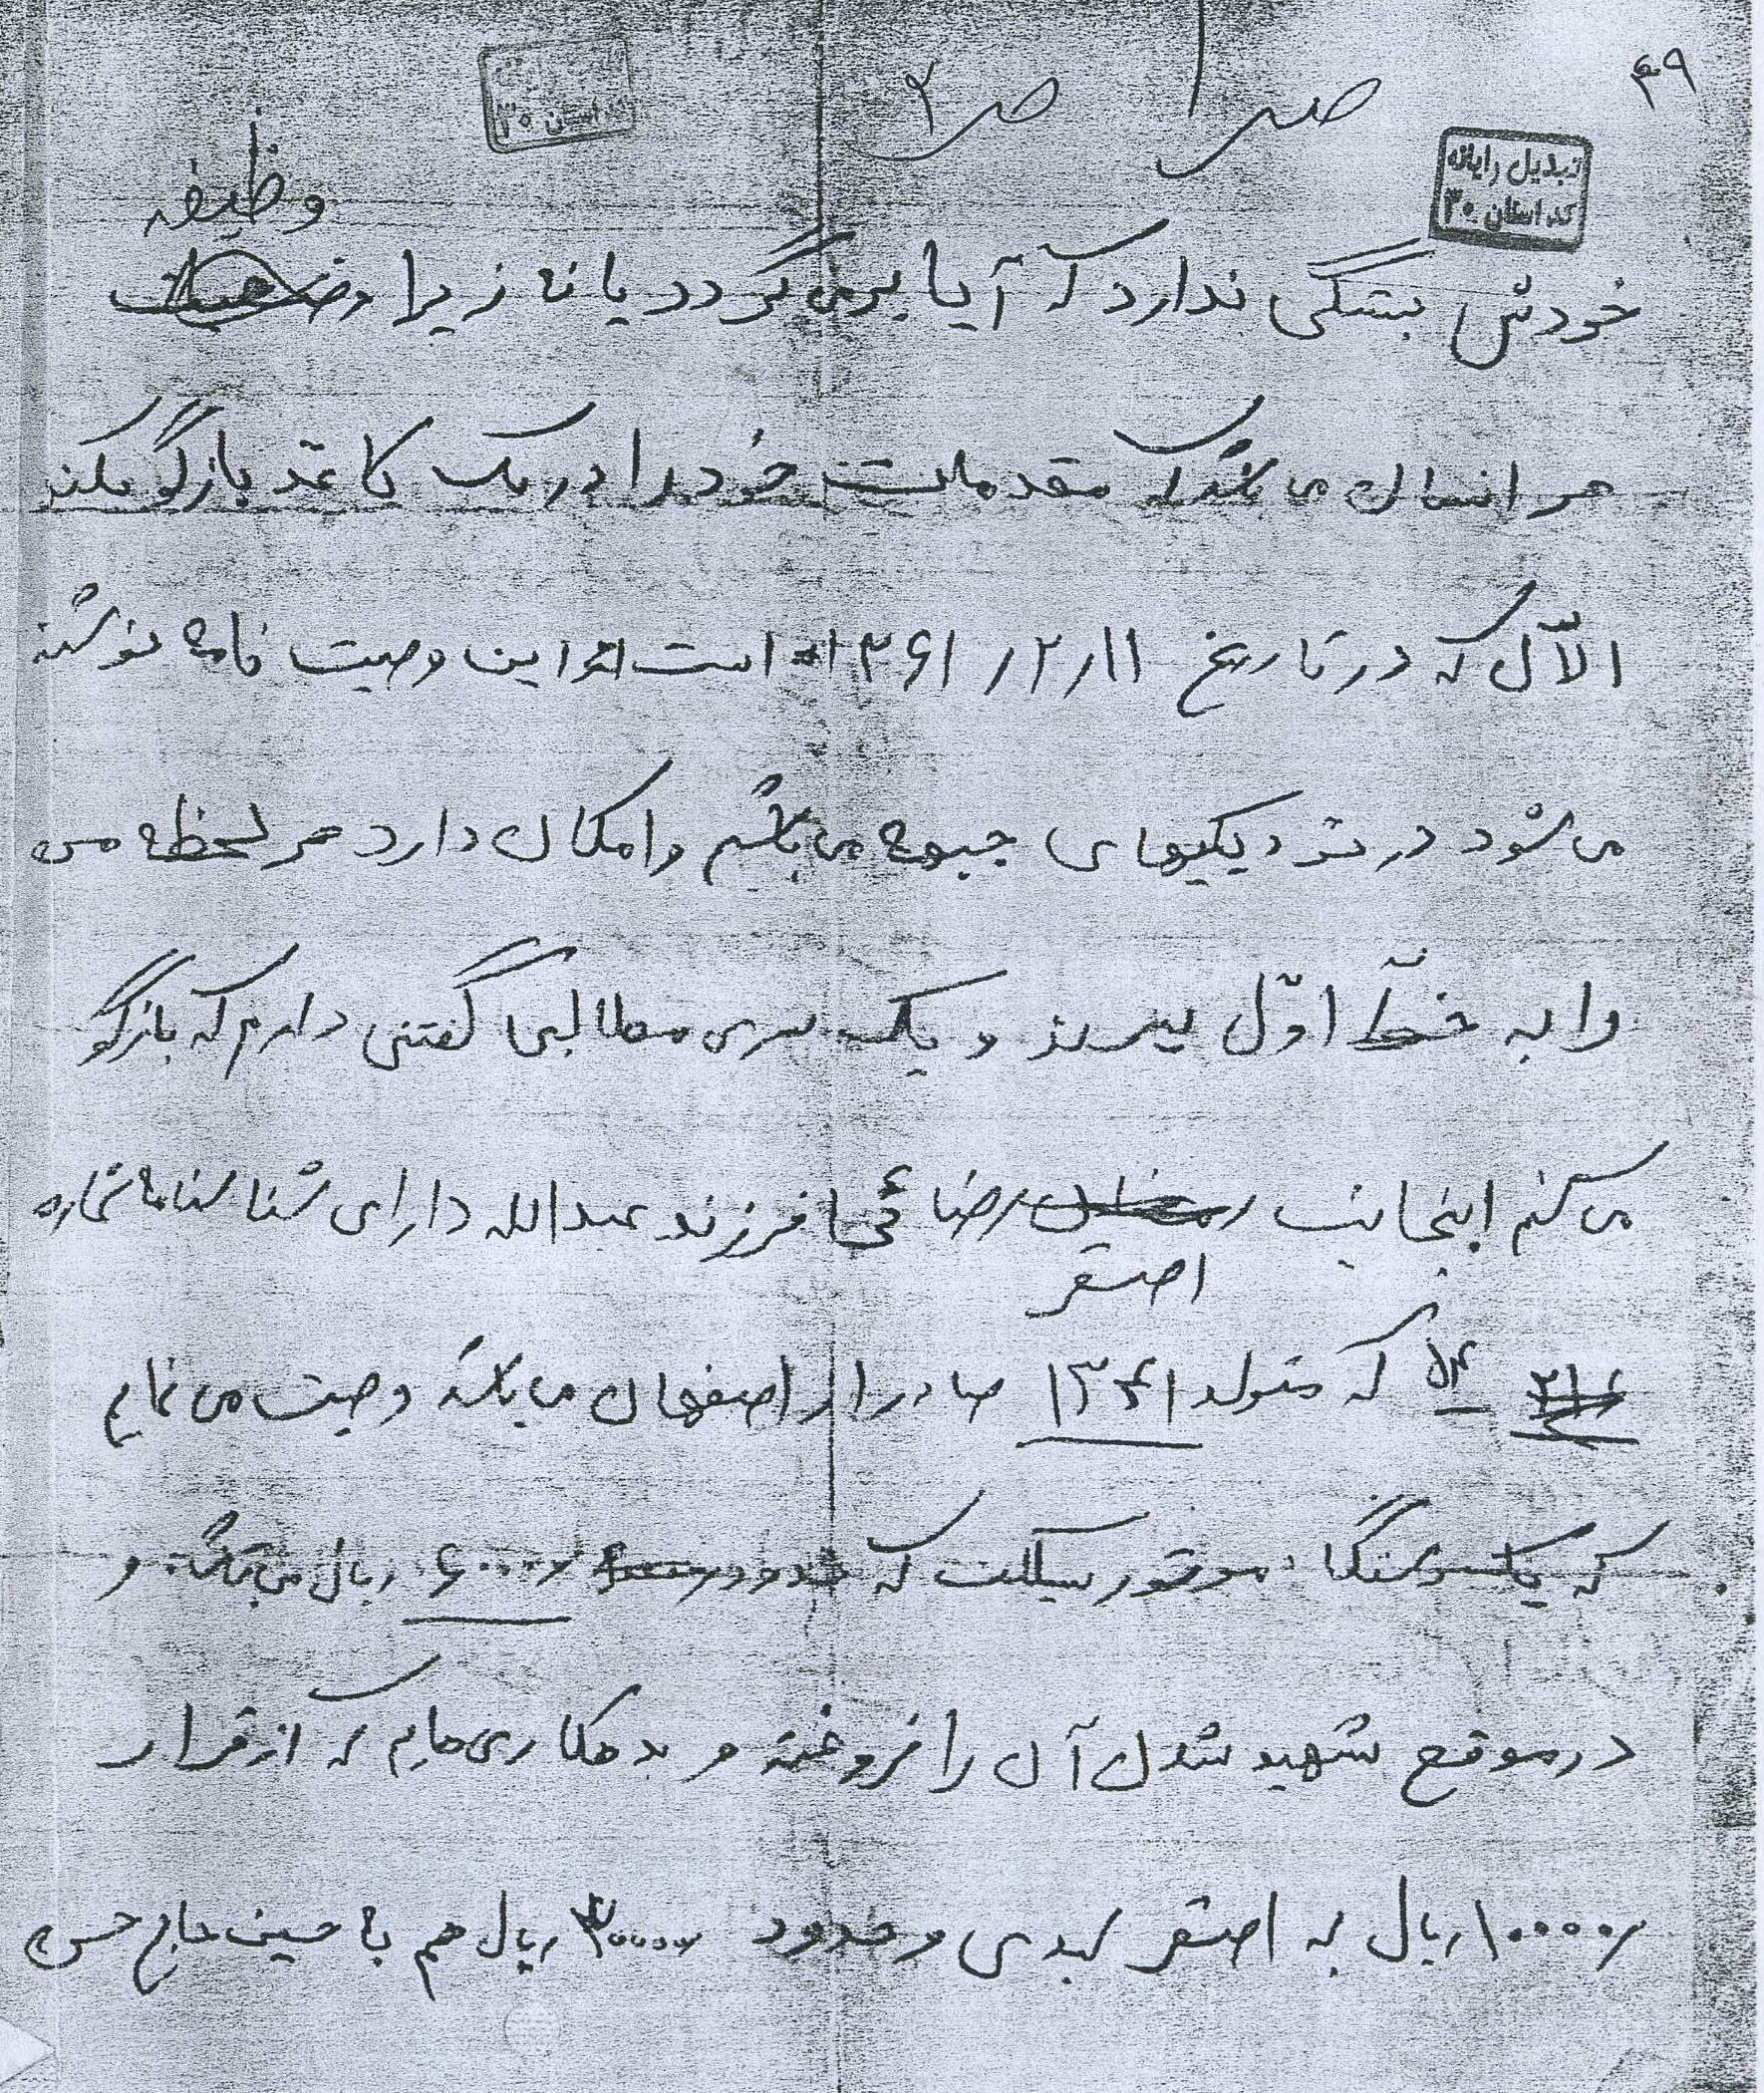 ۴۹
ص ۲
تبدیل رایانه
کد استان ۳۰
کد استان ۳۰
وظیفه
خودش بستگی ندارد که آیا برمی گردد یا نه زیرا
هر انسان می باشد که مقدمات خود را در یک کاغذ بازگو بکند
الآن که در تاریخ ۱۳۶۱/۲/۱۱ است این وصیت نامه نوشته
می شود در نزدیکیهای جبهه می باشم و امکان دارد هر لحظه من
را به خطّ اوّل ببرند و یک سری مطالبی گفتنی دارم که بازگو
می کنم اینجانب رضائی فرزند عبدالله دارای شناسنامه شماره
اصغر
۵۴ که متولد ۱۳۴۱ صادر از اصفهان می باشد وصیت می نمایم
که یک دستگاه موتور سیکلت که حدود ۶۰۰۰۰ ریال می باشد و
در موقع شهید شدن آن را فروخته و بدهکاری هایم که از قرار
۱۰۰۰۰۰ ریال به اصغر و حدود ۳۰۰۰۰ ریال هم به حسین حاج حسن